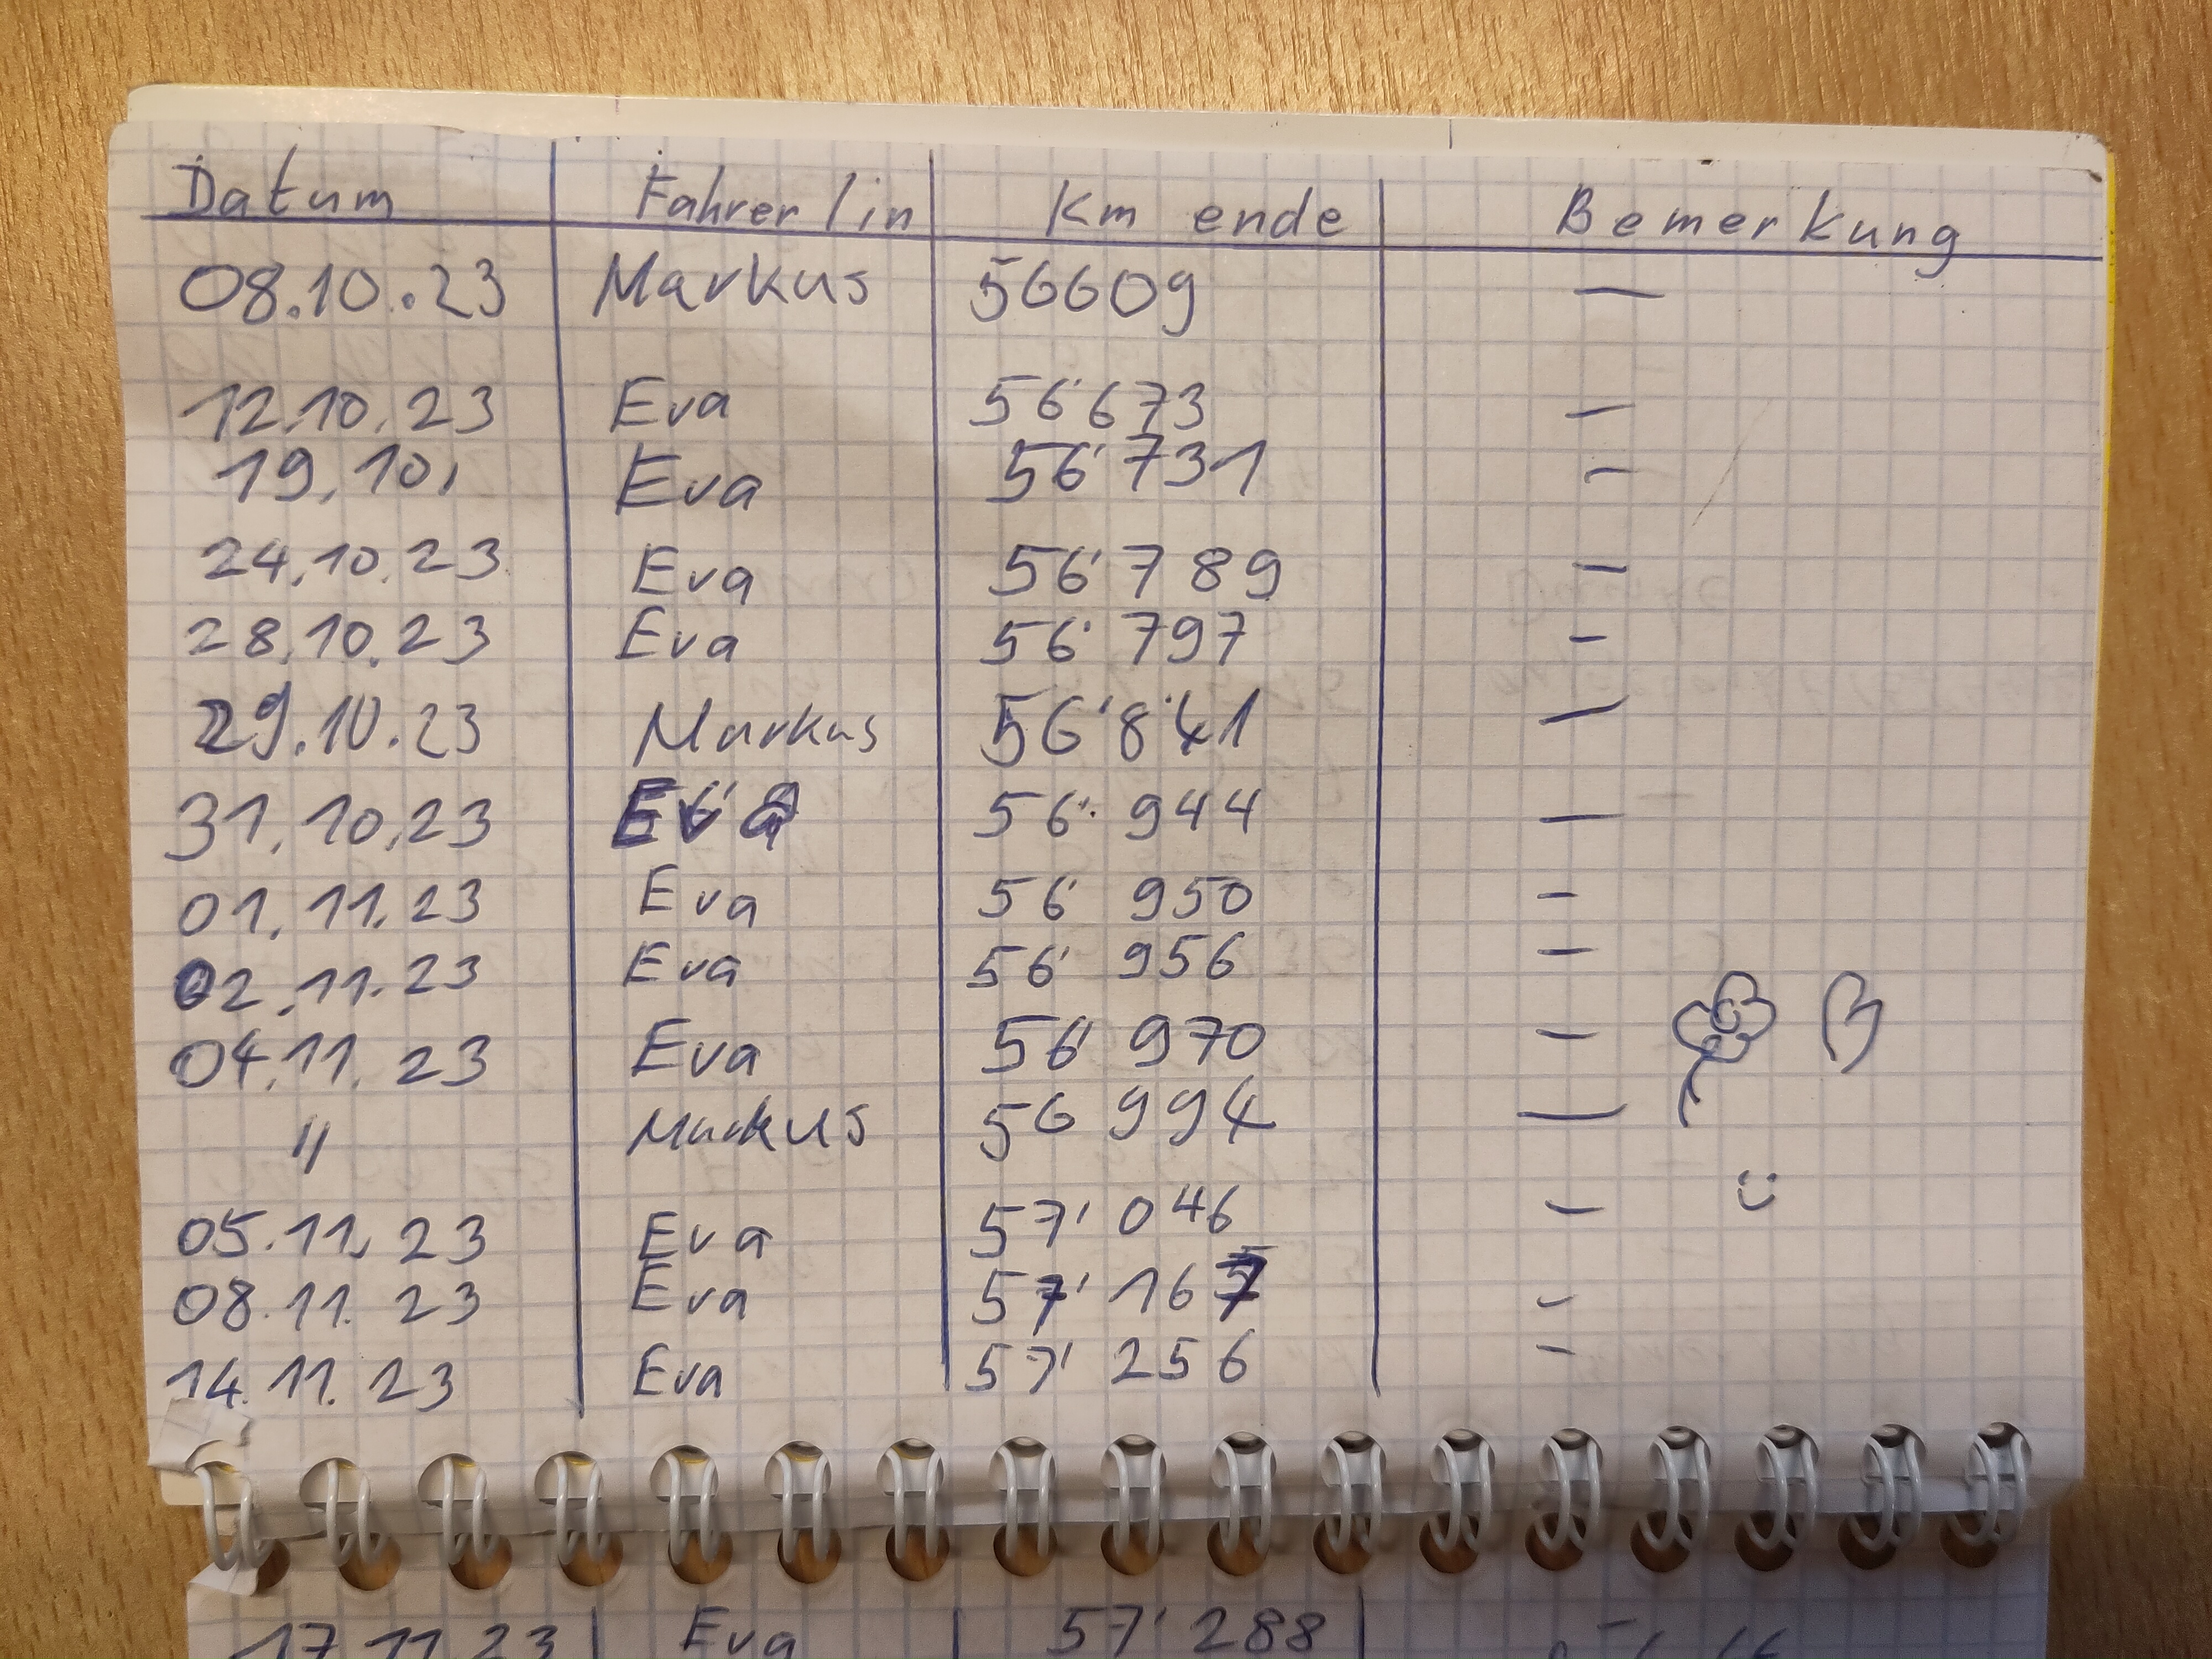 Datum Fahrer/in Km ende Bemerkung
08.10.23 Markus 56609 —
12.10.23 Eva 56'673 —
19.10. Eva 56'731 —
24.10.23 Eva 56'789 —
28.10.23 Eva 56'797 —
29.10.23 Markus 56'841 —
31.10.23 Eva 56'944 —
01.11.23 Eva 56'950 —
02.11.23 Eva 56'956 —
04.11.23 Eva 56'970 —
" Markus 56 994 —
05.11.23 Eva 57'046 — :)
08.11.23 Eva 57'167 —
14.11.23 Eva 57'256 —
17.11.23 Eva 57'288